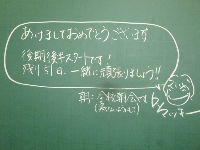 あけましておめでとうございます
後期後半スタートです!
残り51日、一緒に頑張りましょう!!
朝:全校朝会です